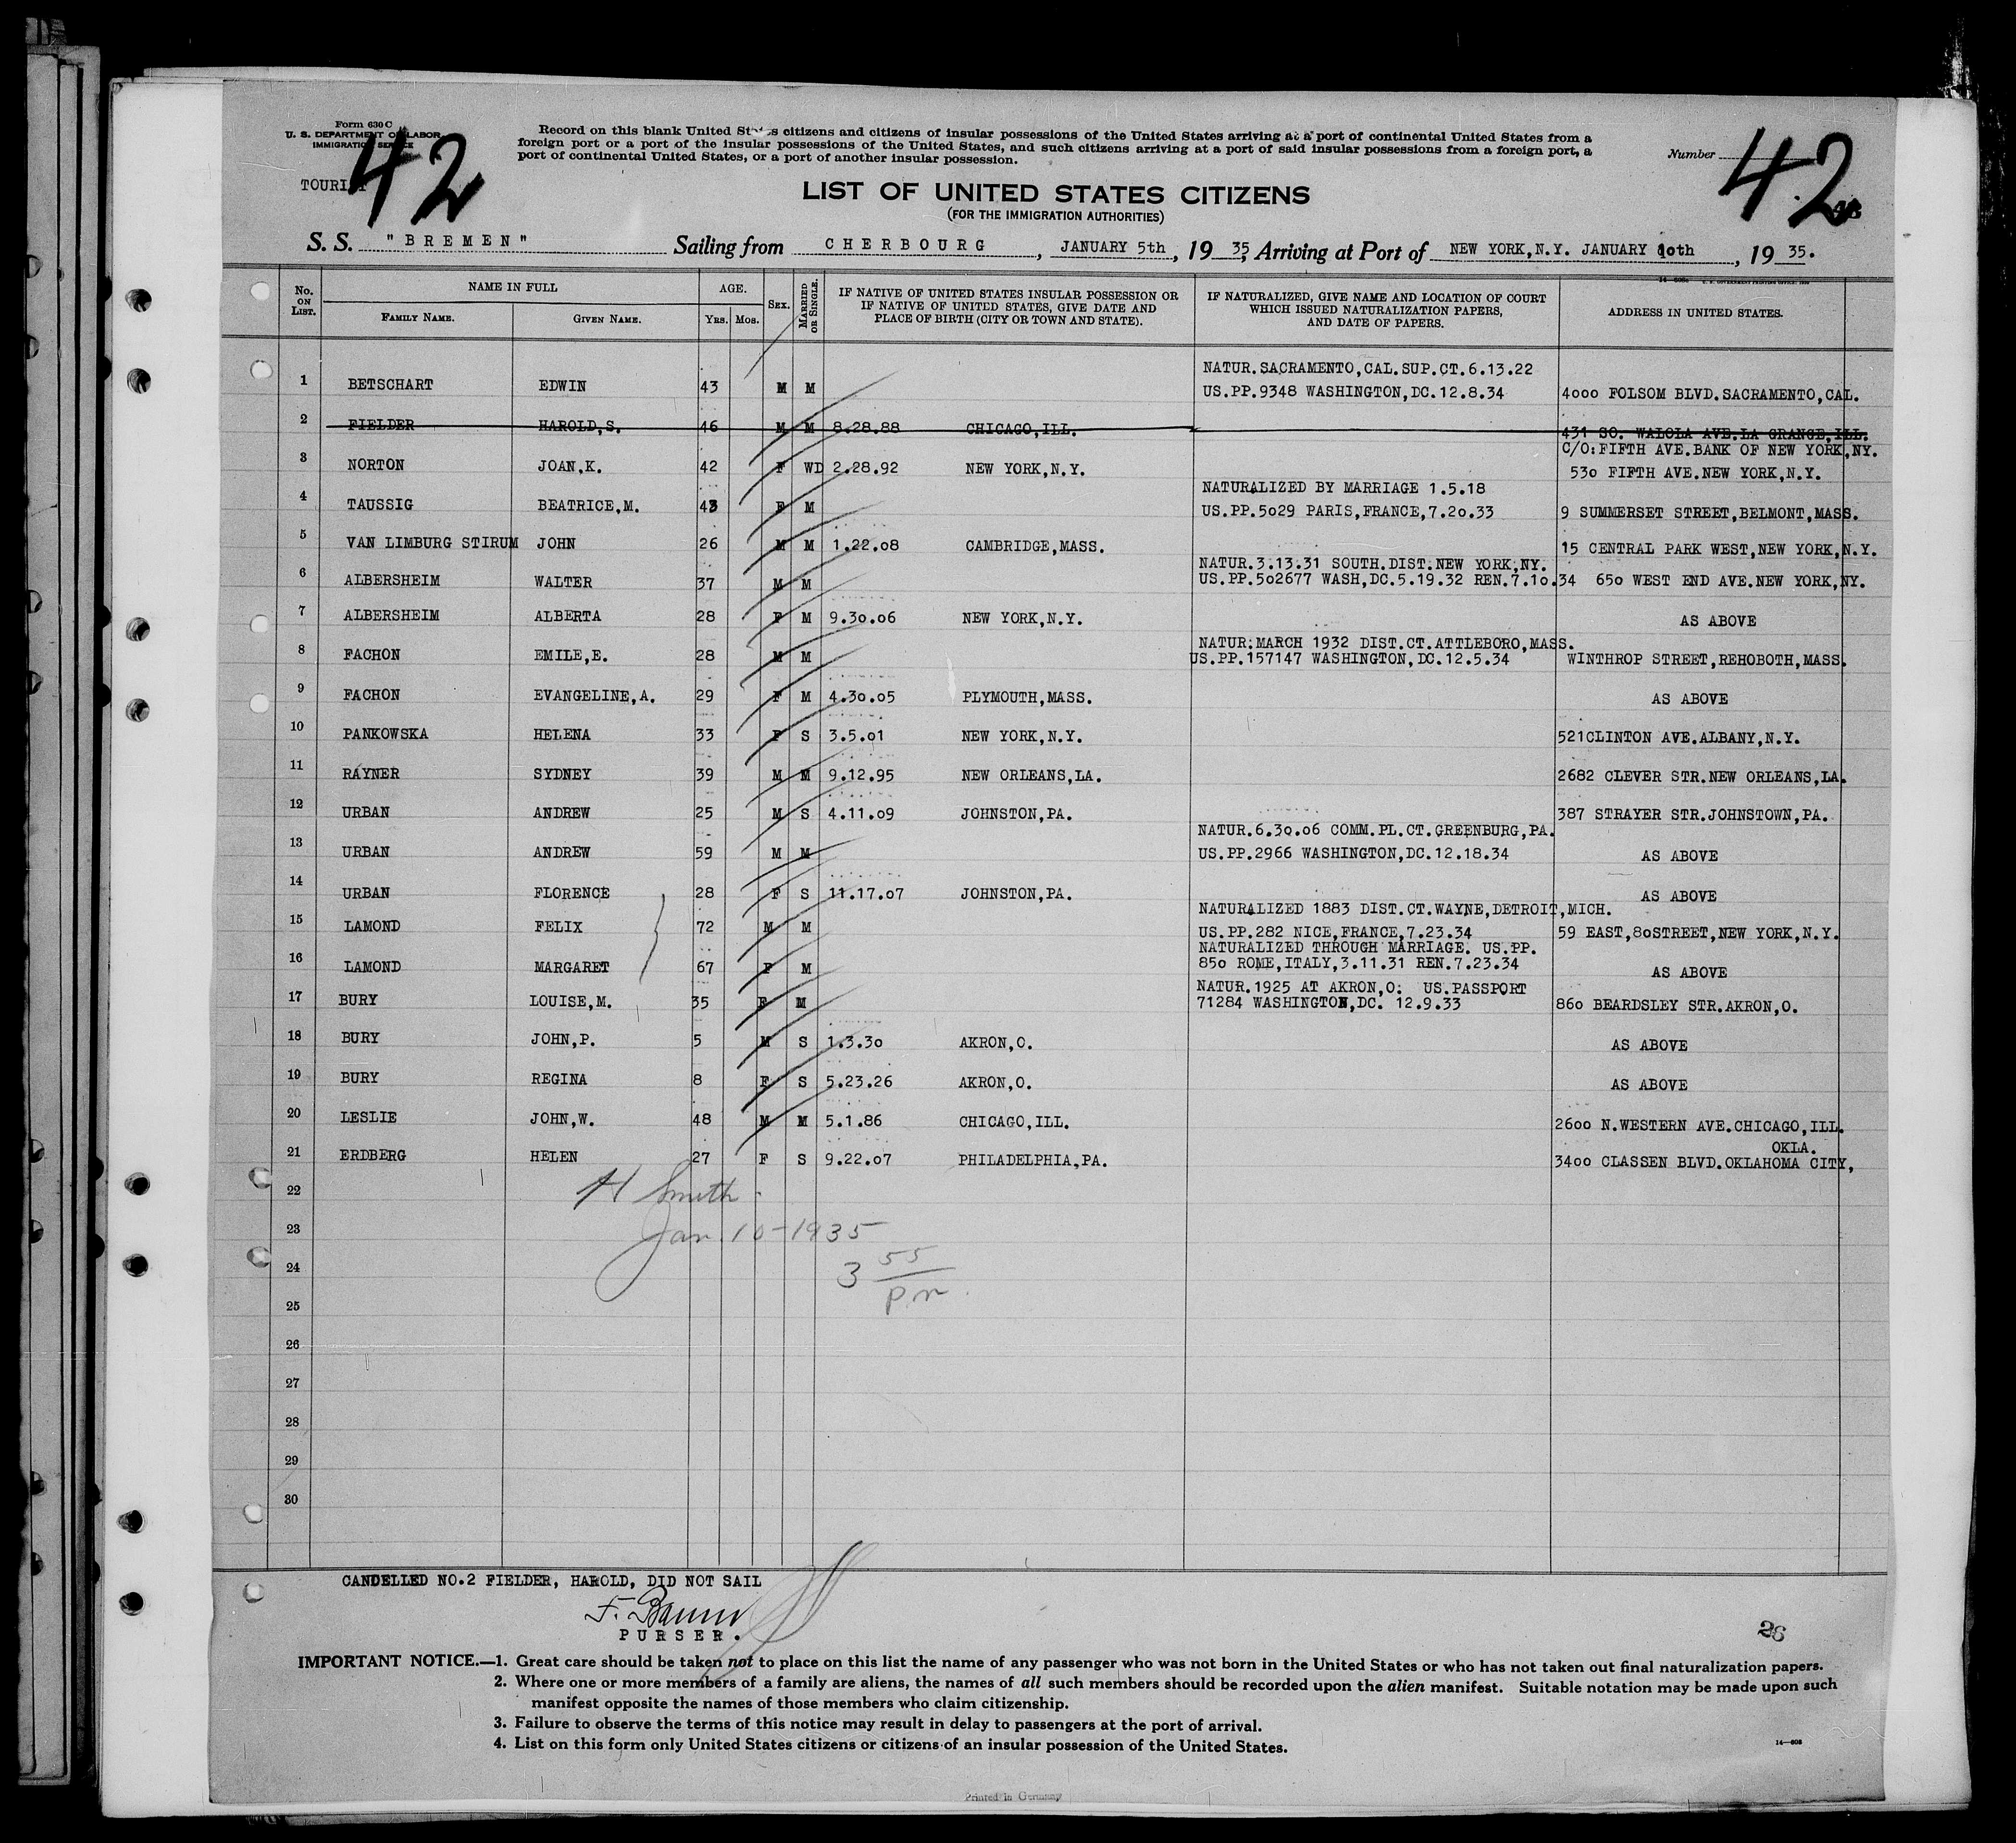 Form 630 C
U. S. DEPARTMENT OF LABOR
IMMIGRATION SERVICE
42
TOURIST
Record on this blank United States citizens and citizens of insular possessions of the United States arriving at a port of continental United States from a
foreign port or a port of the insular possessions of the United States, and such citizens arriving at a port of said insular possessions from a foreign port, a
port of continental United States, or a port of another insular possession.
Number
42
LIST OF UNITED STATES CITIZENS
(FOR THE IMMIGRATION AUTHORITIES)
S. S. "BREMEN" Sailing from CHERBOURG, JANUARY 5th, 19 35, Arriving at Port of NEW YORK,N.Y. JANUARY 10th, 19 35.
No. ON LIST. NAME IN FULL FAMILY NAME. GIVEN NAME. AGE. YRS. MOS. SEX. MARRIED OR SINGLE. IF NATIVE OF UNITED STATES INSULAR POSSESSION OR IF NATIVE OF UNITED STATES, GIVE DATE AND PLACE OF BIRTH (CITY OR TOWN AND STATE). IF NATURALIZED, GIVE NAME AND LOCATION OF COURT WHICH ISSUED NATURALIZATION PAPERS, AND DATE OF PAPERS. ADDRESS IN UNITED STATES.
NATUR.SACRAMENTO,CAL.SUP.CT.6.13.22
1 BETSCHART EDWIN 43 M M US.PP.9348 WASHINGTON,DC.12.8.34 4000 FOLSOM BLVD.SACRAMENTO,CAL.
2 FIELDER HAROLD,S. 46 M M 8.28.88 CHICAGO,ILL. 431 SO. WALOLA AVE.LA GRANGE,ILL.
C/O:FIFTH AVE.BANK OF NEW YORK,NY.
3 NORTON JOAN,K. 42 F WD 2.28.92 NEW YORK,N.Y. 530 FIFTH AVE.NEW YORK,N.Y.
NATURALIZED BY MARRIAGE 1.5.18
4 TAUSSIG BEATRICE,M. 43 F M US.PP.5029 PARIS,FRANCE,7.20.33 9 SUMMERSET STREET,BELMONT,MASS.
5 VAN LIMBURG STIRUM JOHN 26 M M 1.22.08 CAMBRIDGE,MASS. 15 CENTRAL PARK WEST,NEW YORK,N.Y.
NATUR.3.13.31 SOUTH.DIST.NEW YORK,NY.
6 ALBERSHEIM WALTER 37 M M US.PP.502677 WASH,DC.5.19.32 REN.7.10.34 650 WEST END AVE.NEW YORK,NY.
7 ALBERSHEIM ALBERTA 28 F M 9.30.06 NEW YORK,N.Y. AS ABOVE
NATUR:MARCH 1932 DIST.CT.ATTLEBORO,MASS.
8 FACHON EMILE,E. 28 M M US.PP.157147 WASHINGTON,DC.12.5.34 WINTHROP STREET,REHOBOTH,MASS.
9 FACHON EVANGELINE,A. 29 F M 4.30.05 PLYMOUTH,MASS. AS ABOVE
10 PANKOWSKA HELENA 33 F S 3.5.01 NEW YORK,N.Y. 521CLINTON AVE.ALBANY,N.Y.
11 RAYNER SYDNEY 39 M M 9.12.95 NEW ORLEANS,LA. 2682 CLEVER STR.NEW ORLEANS,LA.
12 URBAN ANDREW 25 M S 4.11.09 JOHNSTON,PA. 387 STRAYER STR.JOHNSTOWN,PA.
NATUR.6.30.06 COMM.PL.CT.GREENBURG,PA.
13 URBAN ANDREW 59 M M US.PP.2966 WASHINGTON,DC.12.18.34 AS ABOVE
14 URBAN FLORENCE 28 F S 11.17.07 JOHNSTON,PA. AS ABOVE
NATURALIZED 1883 DIST.CT.WAYNE,DETROIT,MICH.
15 LAMOND FELIX 72 M M US.PP.282 NICE,FRANCE,7.23.34 59 EAST,80STREET,NEW YORK,N.Y.
NATURALIZED THROUGH MARRIAGE. US.PP.
16 LAMOND MARGARET 67 F M 850 ROME,ITALY,3.11.31 REN.7.23.34 AS ABOVE
NATUR.1925 AT AKRON,O: US.PASSPORT
17 BURY LOUISE,M. 35 F M 71284 WASHINGTON,DC. 12.9.33 860 BEARDSLEY STR.AKRON,O.
18 BURY JOHN,P. 5 M S 1.3.30 AKRON,O. AS ABOVE
19 BURY REGINA 8 F S 5.23.26 AKRON,O. AS ABOVE
20 LESLIE JOHN,W. 48 M M 5.1.86 CHICAGO,ILL. 2600 N.WESTERN AVE.CHICAGO,ILL.
OKLA.
21 ERDBERG HELEN 27 F S 9.22.07 PHILADELPHIA,PA. 3400 CLASSEN BLVD.OKLAHOMA CITY,
22
H Smith
23
Jan 10-1935
24
3 55
p.m.
25
26
27
28
29
30
CANDELLED NO.2 FIELDER, HAROLD, DID NOT SAIL
PURSER.
26
IMPORTANT NOTICE.—1. Great care should be taken not to place on this list the name of any passenger who was not born in the United States or who has not taken out final naturalization papers.
2. Where one or more members of a family are aliens, the names of all such members should be recorded upon the alien manifest. Suitable notation may be made upon such
manifest opposite the names of those members who claim citizenship.
3. Failure to observe the terms of this notice may result in delay to passengers at the port of arrival.
4. List on this form only United States citizens or citizens of an insular possession of the United States.
14—608
Printed in Germany